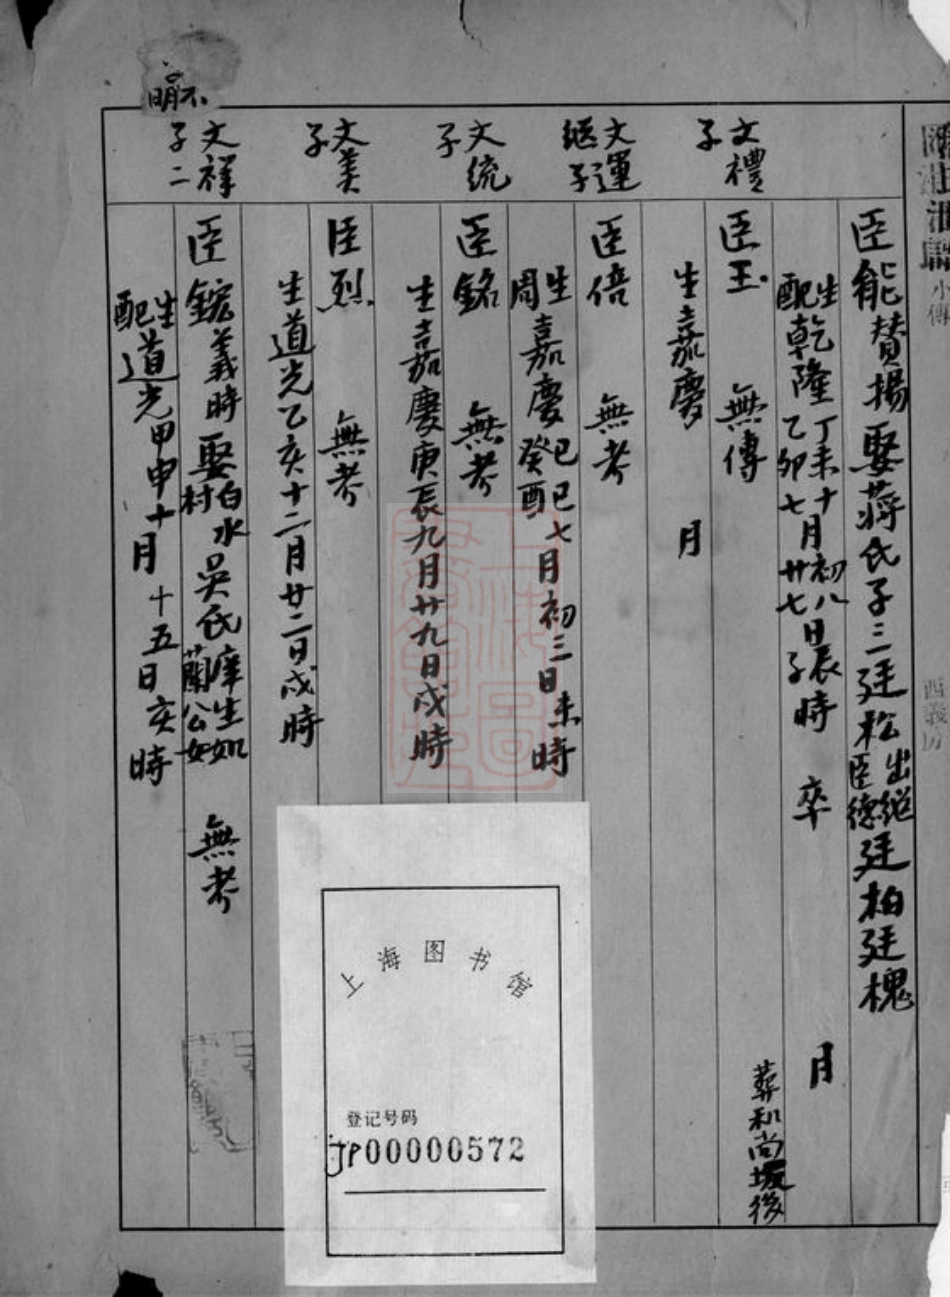 小傳
西義房
文禮
子
臣能贊揚娶蔣氏子三廷松出繼臣德廷柏廷槐
生配乾隆丁未十月初八日辰時乙卯七月廿七日子時 卒 月
葬和尚墩後
臣玉 無傳
生嘉慶 月
文運
繼子
臣倍 無考
生嘉慶己巳七月初三日未時
周 癸酉
文統
子
臣銘 無考
生嘉慶庚辰九月廿九日戌時
文美
子
臣烈 無考
生道光乙亥十二月廿二日戌時
文祥
子二
臣鋐義時娶白水村吳氏庠生如蘭公女 無考
生配道光甲申十月十五日亥時
上海图书馆
登记号码
JP00000572